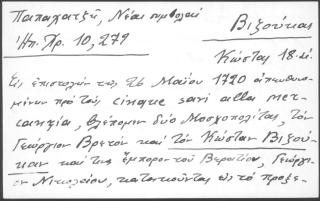 Παπαχατζῆ, Νέαι συμβολαί
Βιζούκας
Ἠπ. Χρ. 10,279
Κώστας 18. αἰ.
Εἰς ἐπιστολήν τῆς 26 Μαΐου 1720 ἀπευθυνο-
μένην πρὸ τούς cinque savi alla mer-
canzia, βλέπομεν δύο Μοσχοπολίτας, τὸν
Γεώργιον Βρετόν καὶ τὸν Κώσταν Βιζού-
καν καὶ τὸν ἔμπορον τοῦ Βερατίου, Γεώργι-
ον Νικολαίου, κατοικοῦντας εἰς τὸ προξε-